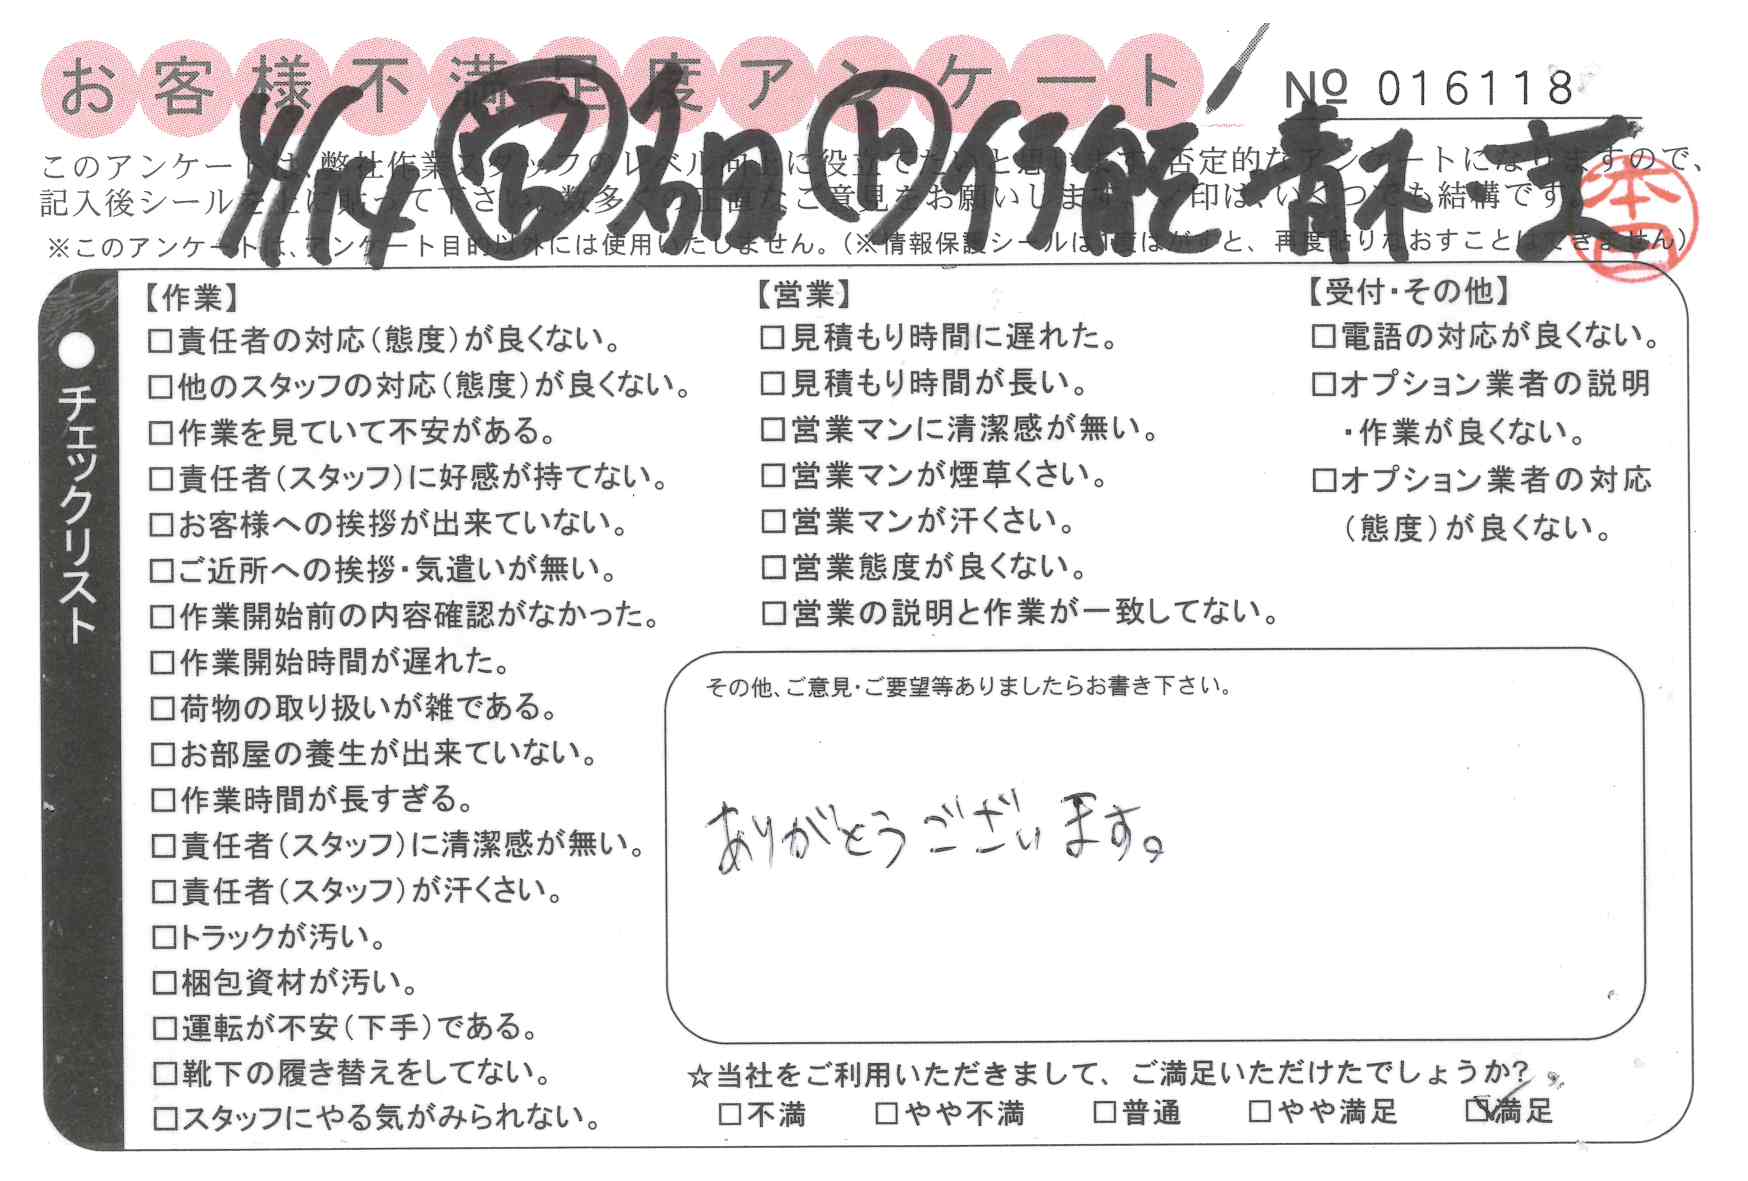 お客様不満足度アンケート
№ 016118
4/14
このアンケートは、弊社作業スタッフのレベル向上に役立てたいと思います。否定的なアンケートになりますので、
記入後シールを上に貼って下さい。数多くの正直なご意見をお願いします。✓印は、いくつでも結構です。
※このアンケートは、アンケート目的以外には使用いたしません。(※情報保護シールは1度はがすと、再度貼りなおすことはできません)
本田
●チェックリスト
【作業】
□責任者の対応(態度)が良くない。
□他のスタッフの対応(態度)が良くない。
□作業を見ていて不安がある。
□責任者(スタッフ)に好感が持てない。
□お客様への挨拶が出来ていない。
□ご近所への挨拶・気遣いが無い。
□作業開始前の内容確認がなかった。
□作業開始時間が遅れた。
□荷物の取り扱いが雑である。
□お部屋の養生が出来ていない。
□作業時間が長すぎる。
□責任者(スタッフ)に清潔感が無い。
□責任者(スタッフ)が汗くさい。
□トラックが汚い。
□梱包資材が汚い。
□運転が不安(下手)である。
□靴下の履き替えをしてない。
□スタッフにやる気がみられない。
【営業】
□見積もり時間に遅れた。
□見積もり時間が長い。
□営業マンに清潔感が無い。
□営業マンが煙草くさい。
□営業マンが汗くさい。
□営業態度が良くない。
□営業の説明と作業が一致してない。
【受付・その他】
□電話の対応が良くない。
□オプション業者の説明
・作業が良くない。
□オプション業者の対応
(態度)が良くない。
その他、ご意見・ご要望等ありましたらお書き下さい。
ありがとうございます。
☆当社をご利用いただきまして、ご満足いただけたでしょうか?
□不満 □やや不満 □普通 □やや満足 ☑満足